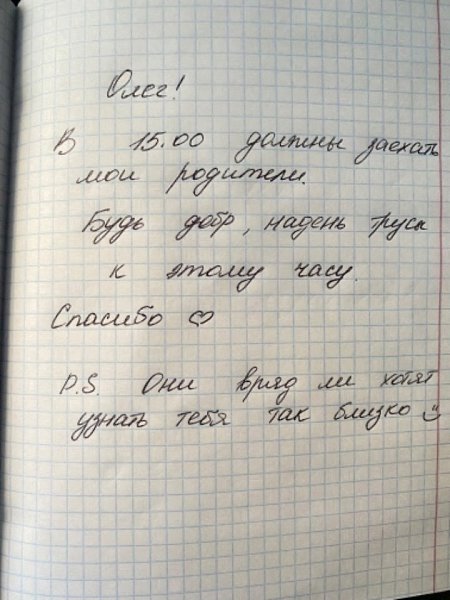 Олег!
В 15.00 должны заехать
мои родители.
Будь добр, надень трусы
к этому часу.
Спасибо ♡
P.S. Они вряд ли хотят
узнать тебя так близко :)